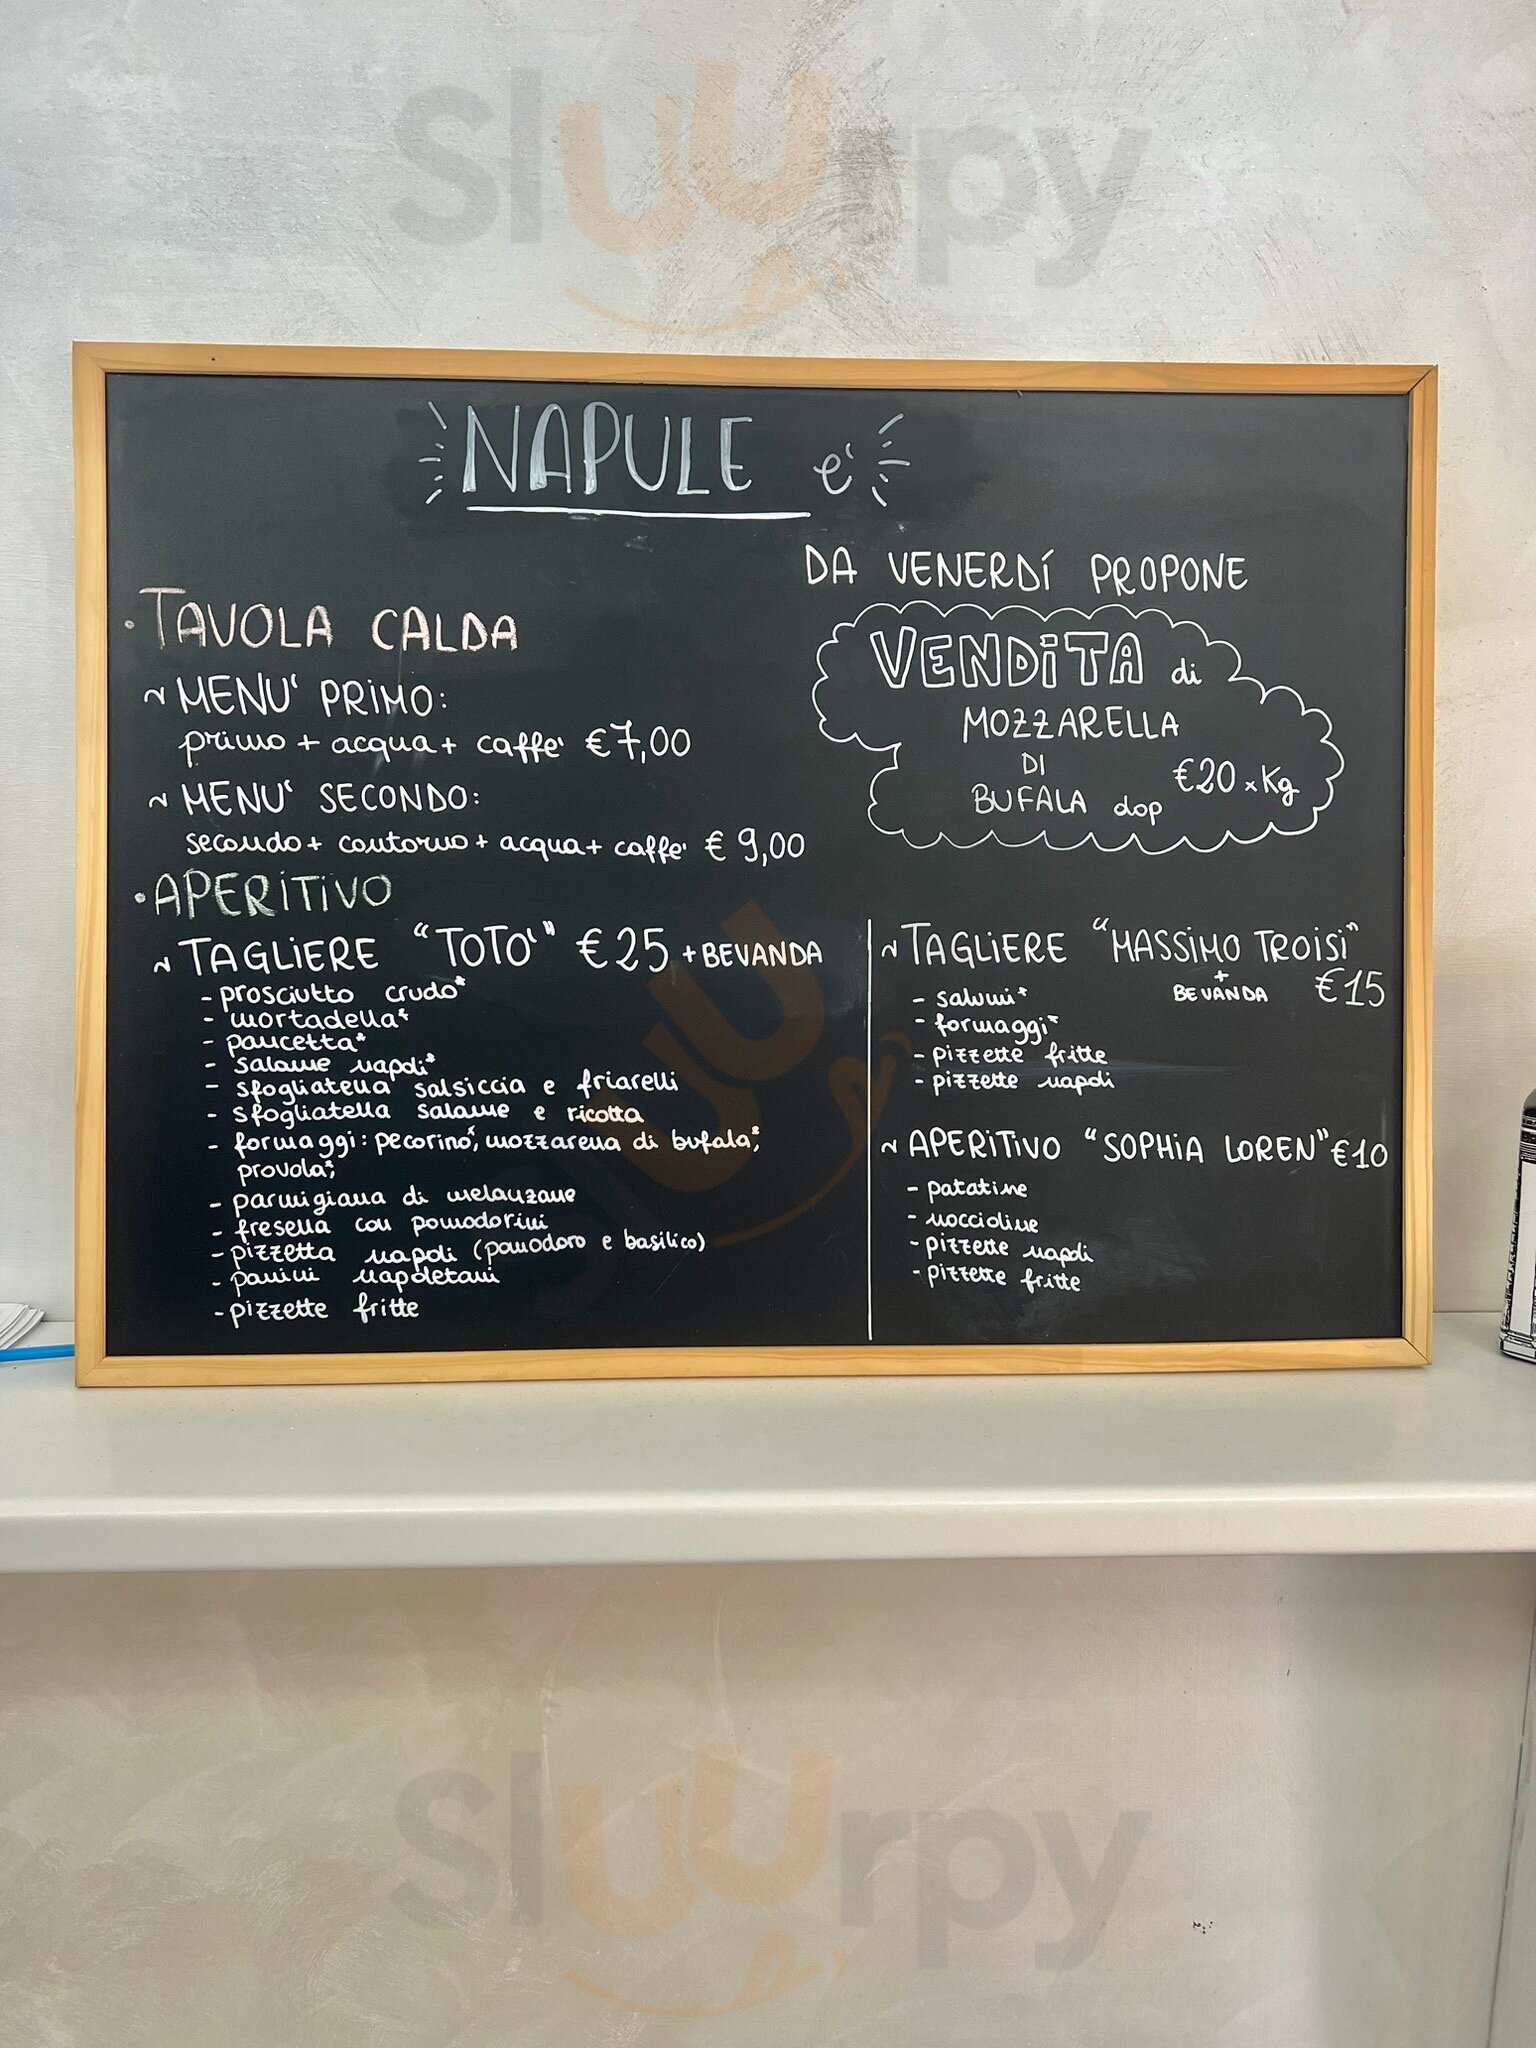 Sluurpy
NAPULE e'
DA VENERDÍ PROPONE
VENDITA di
MOZZARELLA
DI
BUFALA dop €20 x Kg
• TAVOLA CALDA
~ MENU' PRIMO:
primo + acqua + caffe' €7,00
~ MENU' SECONDO:
secondo + contorno + acqua + caffe' € 9,00
• APERITIVO
~ TAGLIERE "TOTO'" €25 + BEVANDA
- prosciutto crudo*
- mortadella*
- pancetta*
- salame napoli*
- sfogliatella salsiccia e friarelli
- sfogliatella salame e ricotta
- formaggi: pecorino*, mozzarella di bufala*,
provola*;
- parmigiana di melanzane
- fresella con pomodorini
- pizzetta napoli (pomodoro e basilico)
- panini napoletani
- pizzette fritte
~ TAGLIERE "MASSIMO TROISI"
+
BEVANDA €15
- salumi*
- formaggi*
- pizzette fritte
- pizzette napoli
~ APERITIVO "SOPHIA LOREN" €10
- patatine
- noccioline
- pizzette napoli
- pizzette fritte
Sluurpy